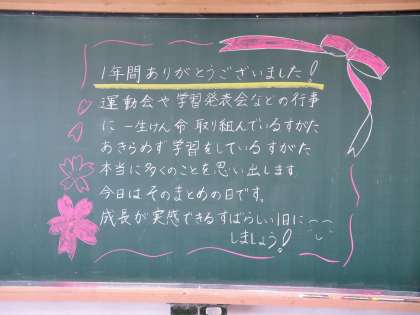 1年間ありがとうございました!
運動会や学習発表会などの行事
に一生けん命取り組んでいるすがた
あきらめず学習をしているすがた
本当に多くのことを思い出します
今日はそのまとめの日です。
成長が実感できるすばらしい1日に
しましょう!